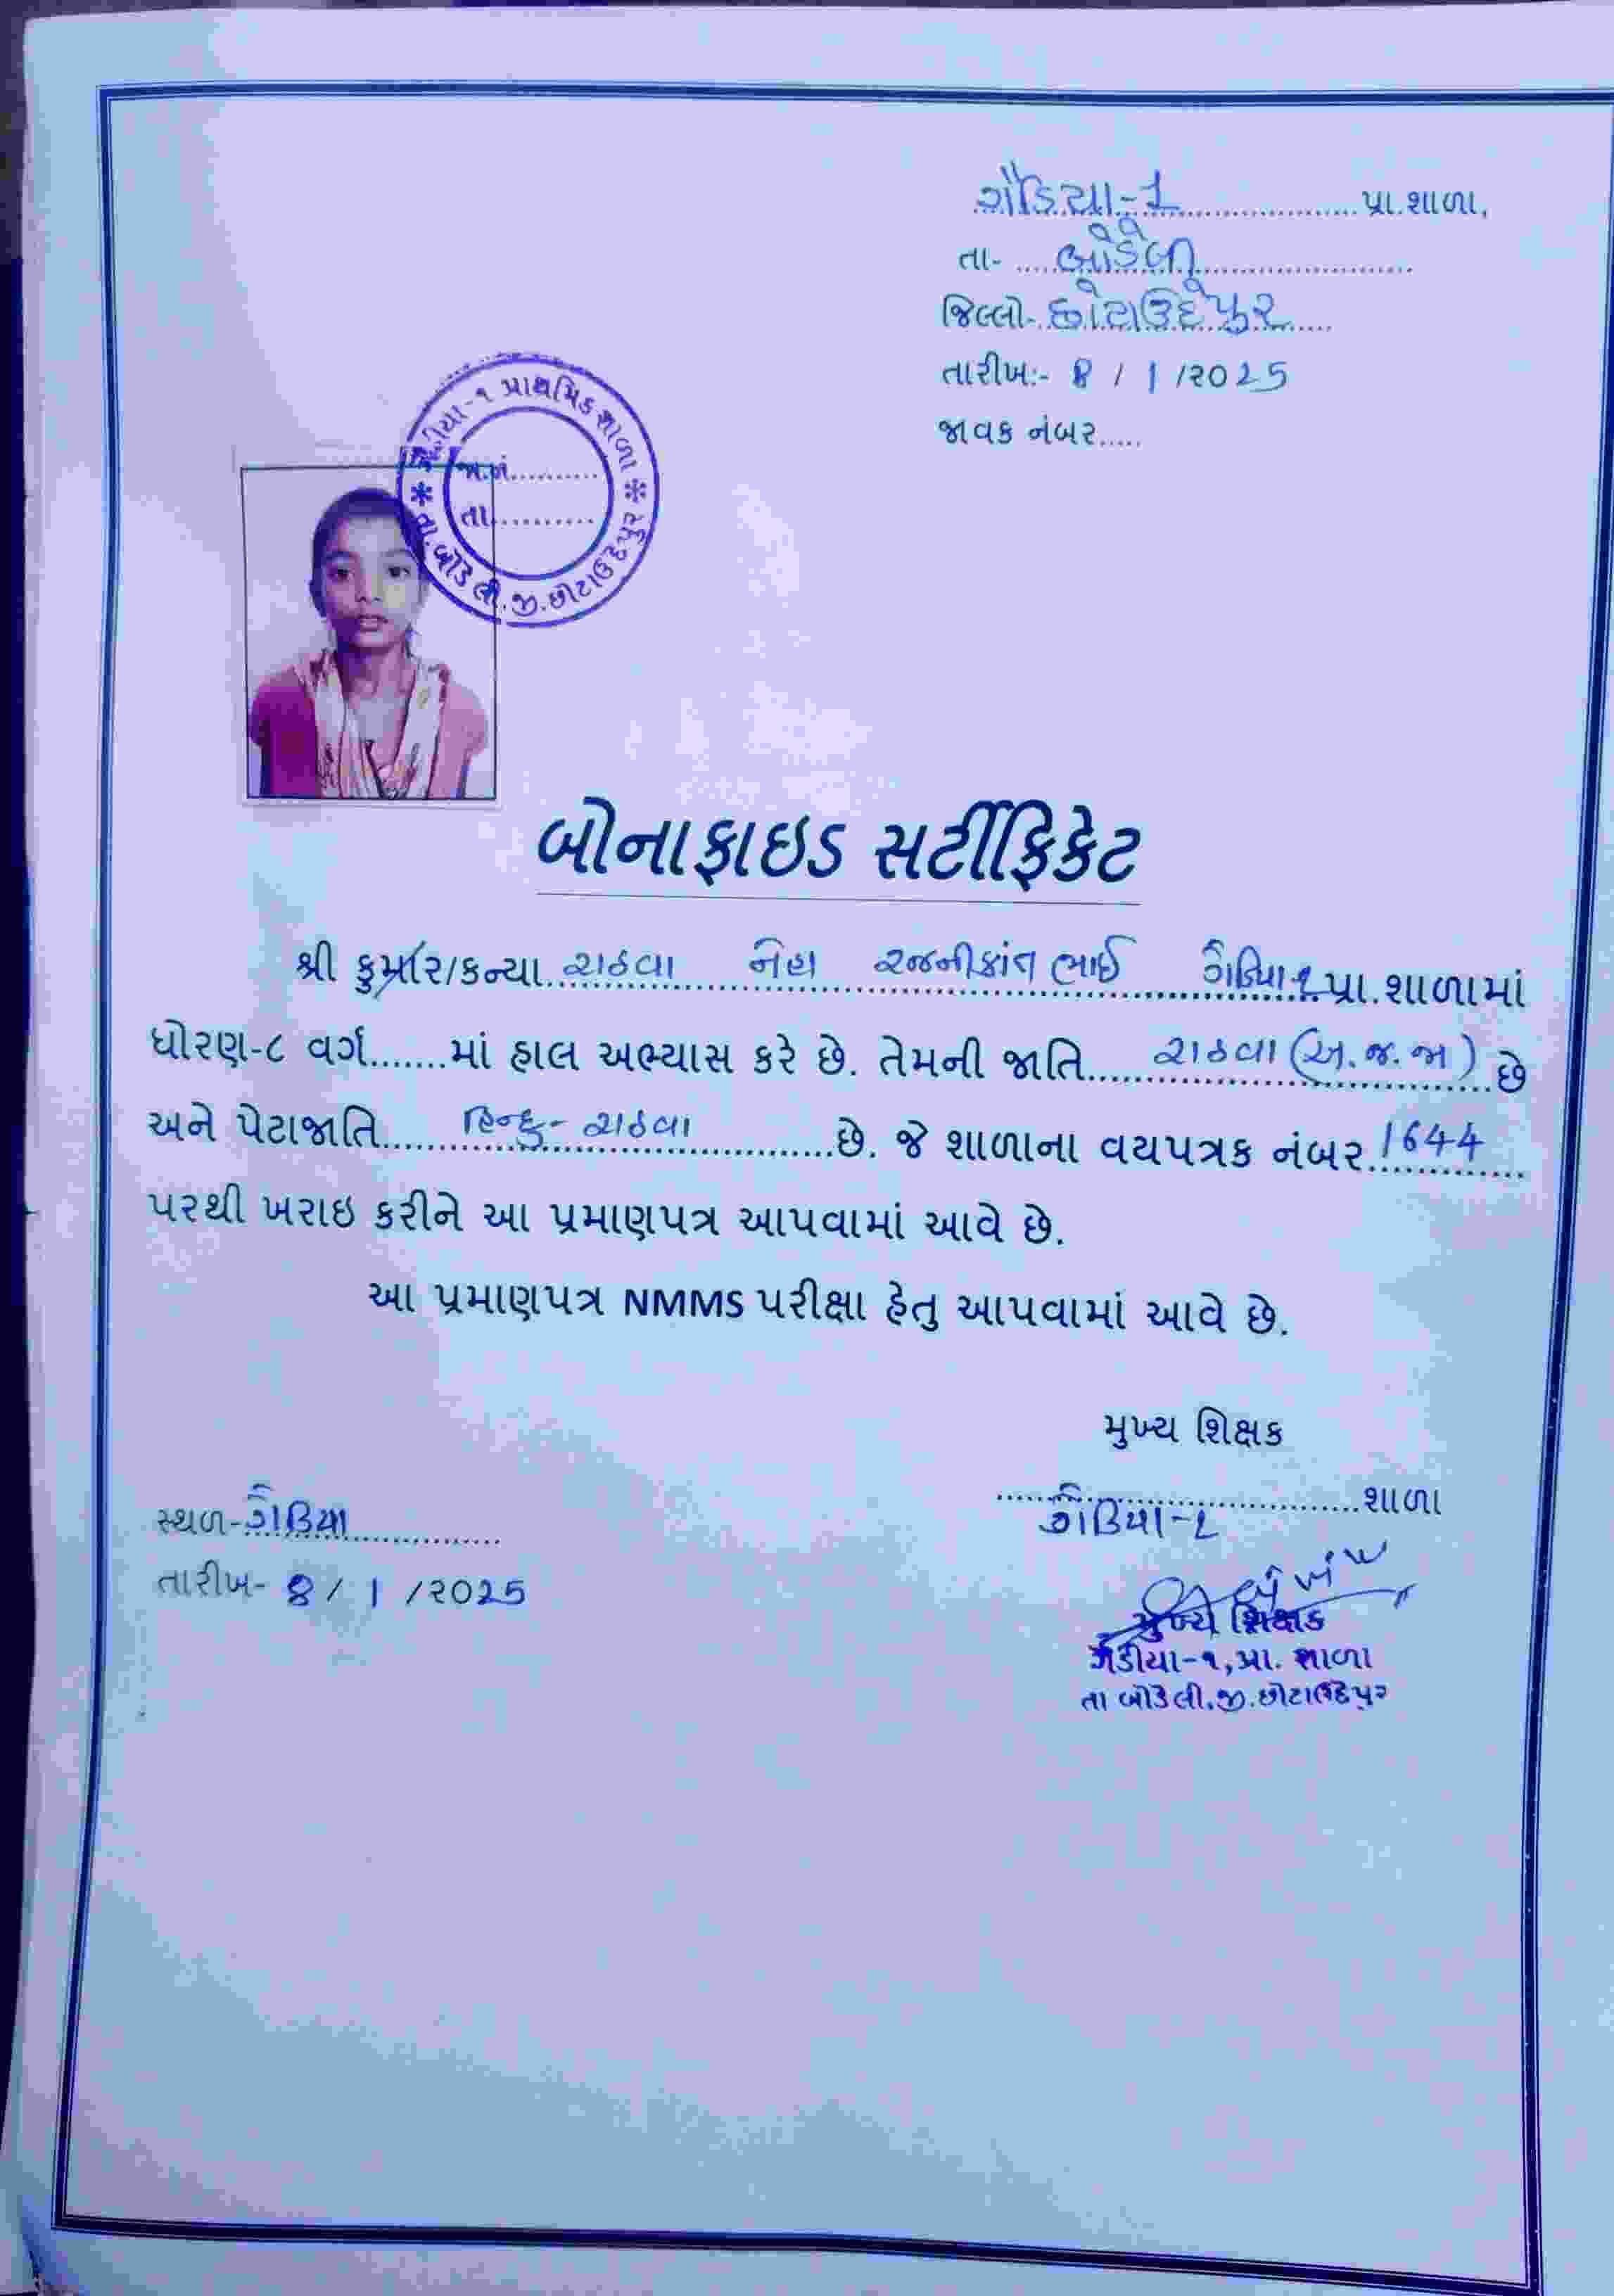 ગેંડિયા-1 પ્રા.શાળા,
તા- બોડેલી
જિલ્લો- છોટાઉદેપુર
તારીખ:- 8 / 1 /૨૦25
જાવક નંબર.....
પ્રાથમિક શાળા
જા.નં..........
તા..........
તા.બોડેલી.જી.છોટાઉદેપુર
બોનાફાઇડ સર્ટીફિકેટ
શ્રી કુમાર/કન્યા રાઠવા નેહા રજનીકાંતભાઈ ગેંડિયા-૧ પ્રા.શાળામાં
ધોરણ-૮ વર્ગ.......માં હાલ અભ્યાસ કરે છે. તેમની જાતિ રાઠવા (અ.જ.જા) છે
અને પેટાજાતિ હિન્દુ - રાઠવા છે. જે શાળાના વયપત્રક નંબર 1644
પરથી ખરાઇ કરીને આ પ્રમાણપત્ર આપવામાં આવે છે.
આ પ્રમાણપત્ર NMMS પરીક્ષા હેતુ આપવામાં આવે છે.
મુખ્ય શિક્ષક
ગેંડિયા-૧ શાળા
સ્થળ- ગેંડિયા
તારીખ- 8 / 1 /૨૦25
મુખ્ય શિક્ષક
ગેંડીયા-૧,પ્રા. શાળા
તા બોડેલી.જી.છોટાઉદેપુર